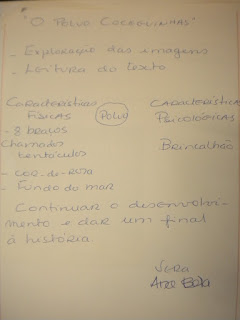 "O Polvo Coceguinhas"
- Exploração das imagens
- Leitura do texto
Características Físicas
Polvo
Características Psicológicas
- 8 braços
Chamados tentáculos
Brincalhão
- cor-de-rosa
- Fundo do mar
Continuar o desenvolvi-
mento e dar um final
à história.
Vera
Ana